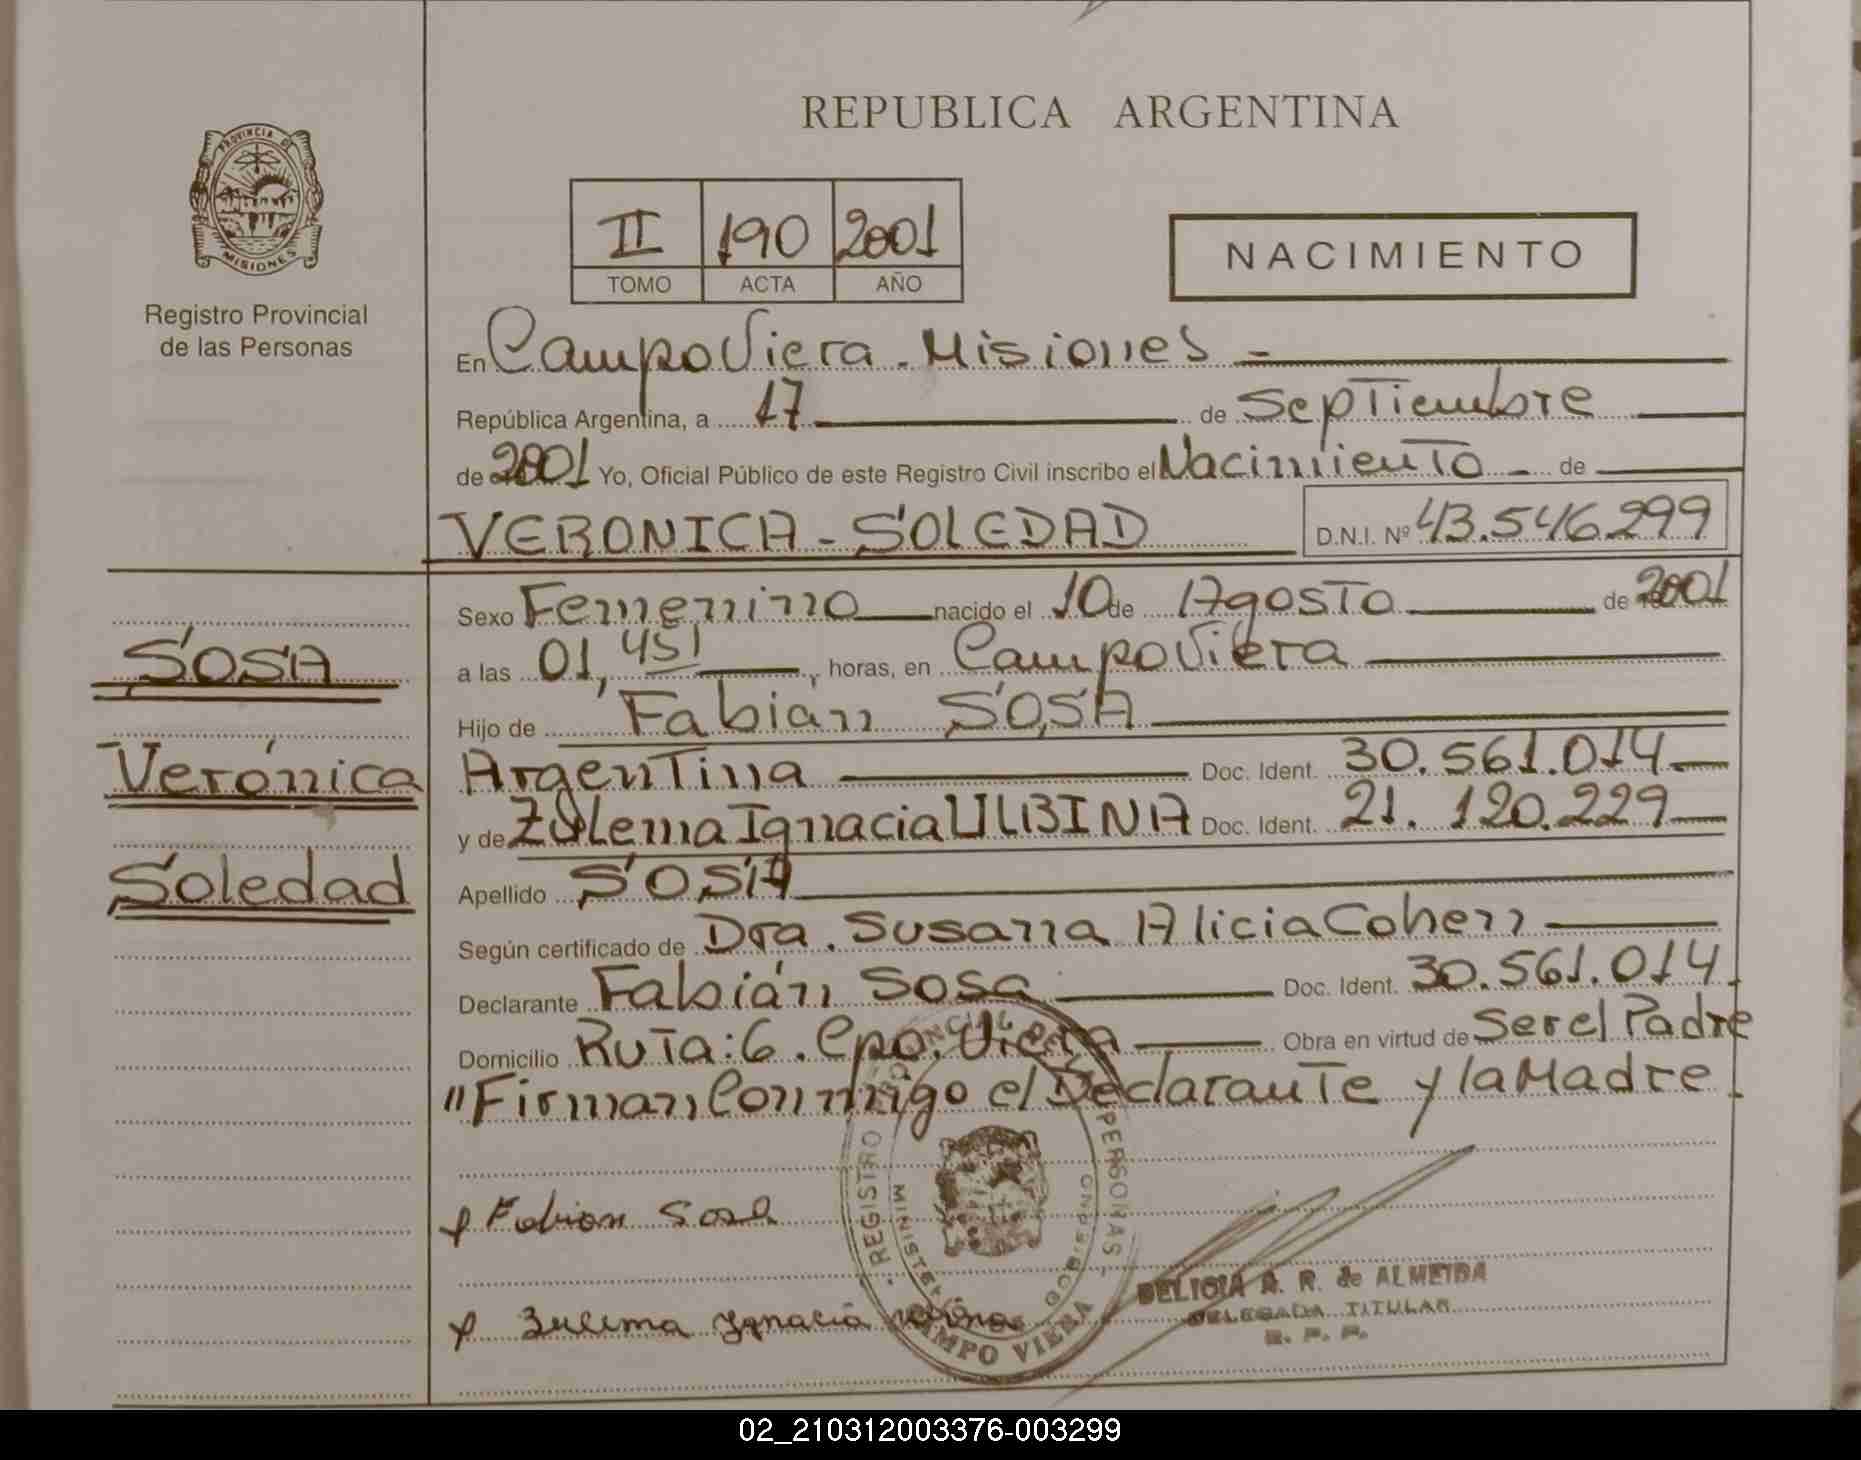 REPUBLICA ARGENTINA
PROVINCIA DE
MISIONES
Registro Provincial
de las Personas
II 190 2001
TOMO ACTA AÑO
NACIMIENTO
En Campo Viera - Misiones =
República Argentina, a 17 de Septiembre
de 2001 Yo, Oficial Público de este Registro Civil inscribo el Nacimiento de
VERONICA - SOLEDAD D.N.I. Nº 43.546.299
SOSA
Verónica
Soledad
Sexo Femenino nacido el 10 de Agosto de 2001
a las 01,45' horas, en Campo Viera
Hijo de Fabián SOSA
Argentina Doc. Ident. 30.561.014
y de Zulema Ignacia ULBINA Doc. Ident. 21.120.229
Apellido SOSA
Según certificado de Dra. Susana Alicia Cohen
Declarante Fabián Sosa Doc. Ident. 30.561.014
Domicilio Ruta: 6. Cpo. Viera Obra en virtud de Ser el Padre
"Firman Conmigo el Declarante y la Madre
Fabian Sosa
Zulema Ignacia
REGISTRO PERSONAS
CAMPO VIERA
DELICIA A. R. de ALMEIDA
DELEGADA TITULAR
R. P. P.
02_210312003376-003299